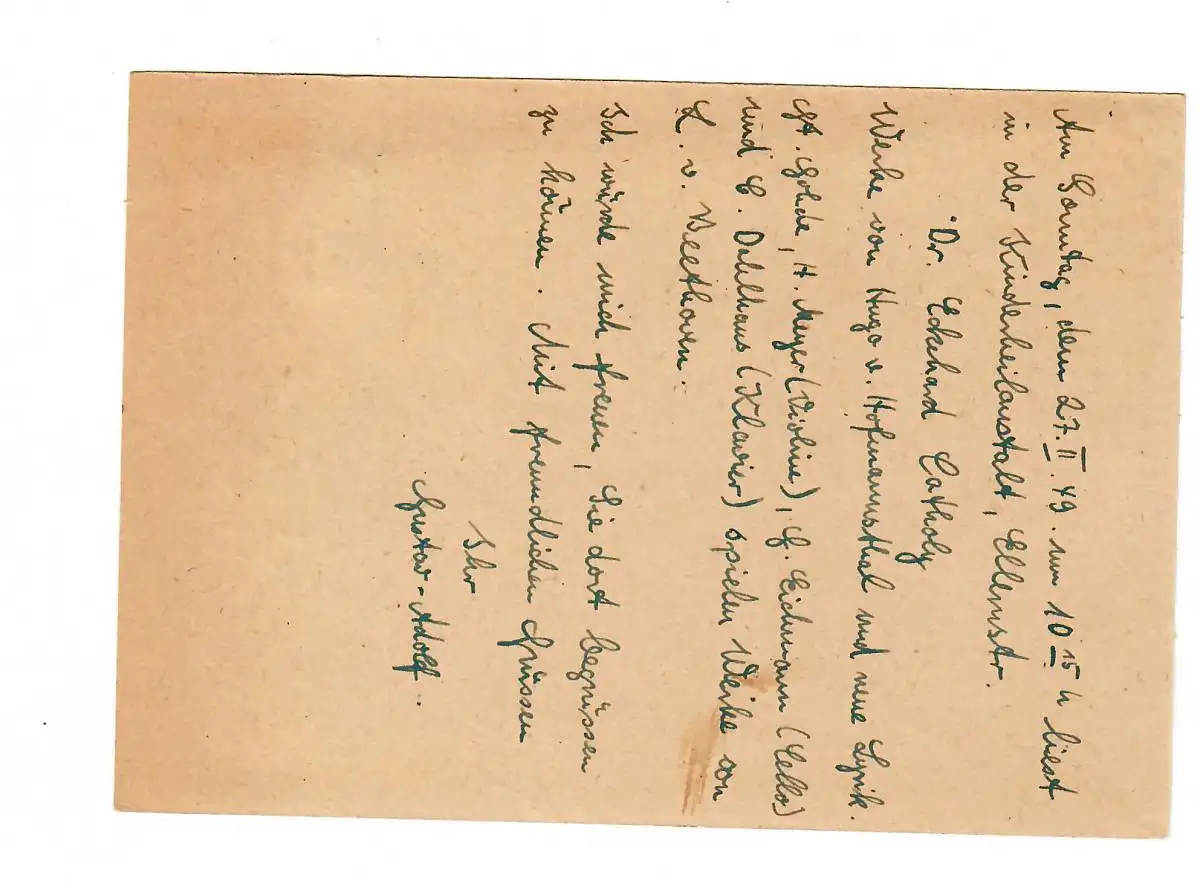 Am Sonntag, dem 27. II. 49. um 10 15 h liest
in der Kinderheilanstalt, Ellernstr.
Dr. Eckehard Catholy
Werke von Hugo v. Hofmannsthal und neue Lyrik.
Golde, H. Meyer (Violine), G. Eichmann (Cello)
und C. Dahlhaus (Klavier) spielen Werke von
L. v. Beethoven.
Ich würde mich freuen, Sie dort begrüssen
zu können. Mit freundlichen Grüssen
Ihr
Gustav-Adolf.